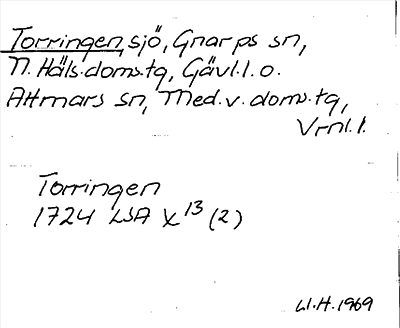 Torringen, sjö, Gnarps sn,
N. Häls. doms.tg, Gävl. l. o.
Attmars sn, Med. v. doms.tg,
Vrnl. l.
Torringen
1724 LSA X 13 (2)
W.H. 1969